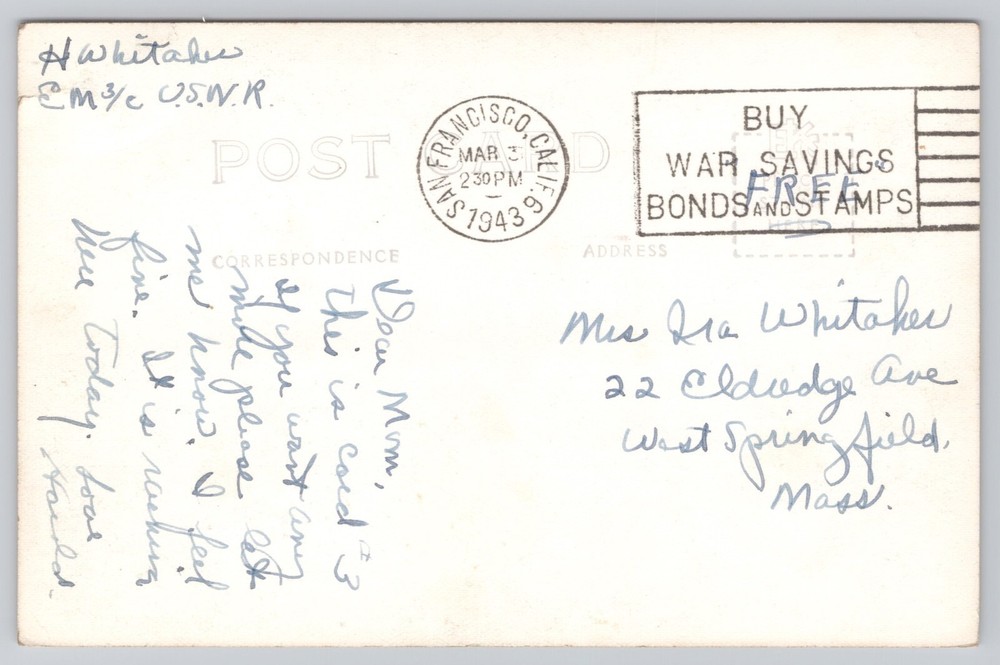 H Whitaker
EM 3/c U.S.N.R.
POST CARD
SAN FRANCISCO, CALIF. 9
MAR 3
230 PM
1943
BUY
WAR SAVINGS
BONDS AND STAMPS
FREE
HERE
CORRESPONDENCE
ADDRESS
Dear Mom,
This is card #3
If you want any
more please let
me know. I feel
fine. It is
here today. Love
Harold.
Mrs Ira Whitaker
22 Eldridge Ave
West Springfield.
Mass.